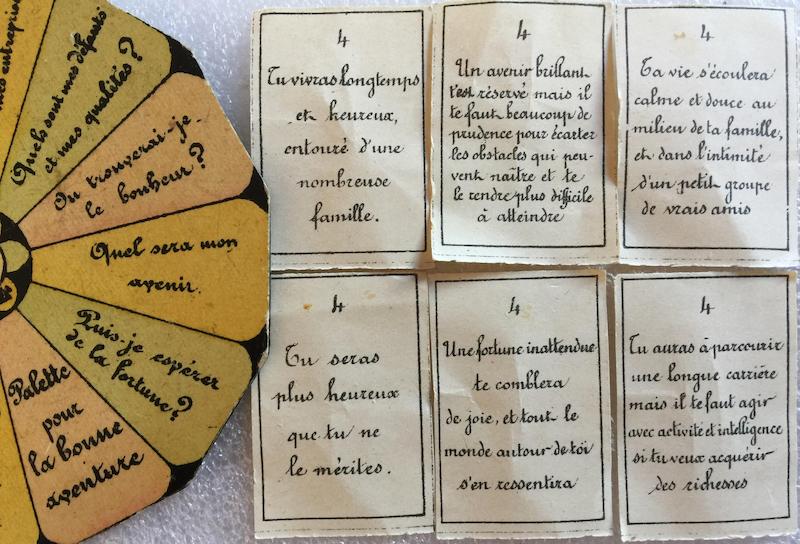 mes entrepris
Quels sont mes défauts
et mes qualités?
Où trouverai-je
le bonheur?
Quel sera mon
avenir.
Puis-je espérer
de la fortune?
Palette
pour
la bonne
aventure
4
Tu vivras longtemps
et heureux,
entouré d'une
nombreuse
famille.
4
Un avenir brillant
t'est réservé mais il
te faut beaucoup de
prudence pour écarter
les obstacles qui peu-
vent naître et te
le rendre plus difficile
à atteindre
4
Ta vie s'écoulera
calme et douce au
milieu de ta famille,
et dans l'intimité
d'un petit groupe
de vrais amis
4
Tu seras
plus heureux
que tu ne
le mérites.
4
Une fortune inattendue
te comblera
de joie, et tout le
monde autour de toi
s'en ressentira
4
Tu auras à parcourir
une longue carrière
mais il te faut agir
avec activité et intelligence
si tu veux acquérir
des richesses